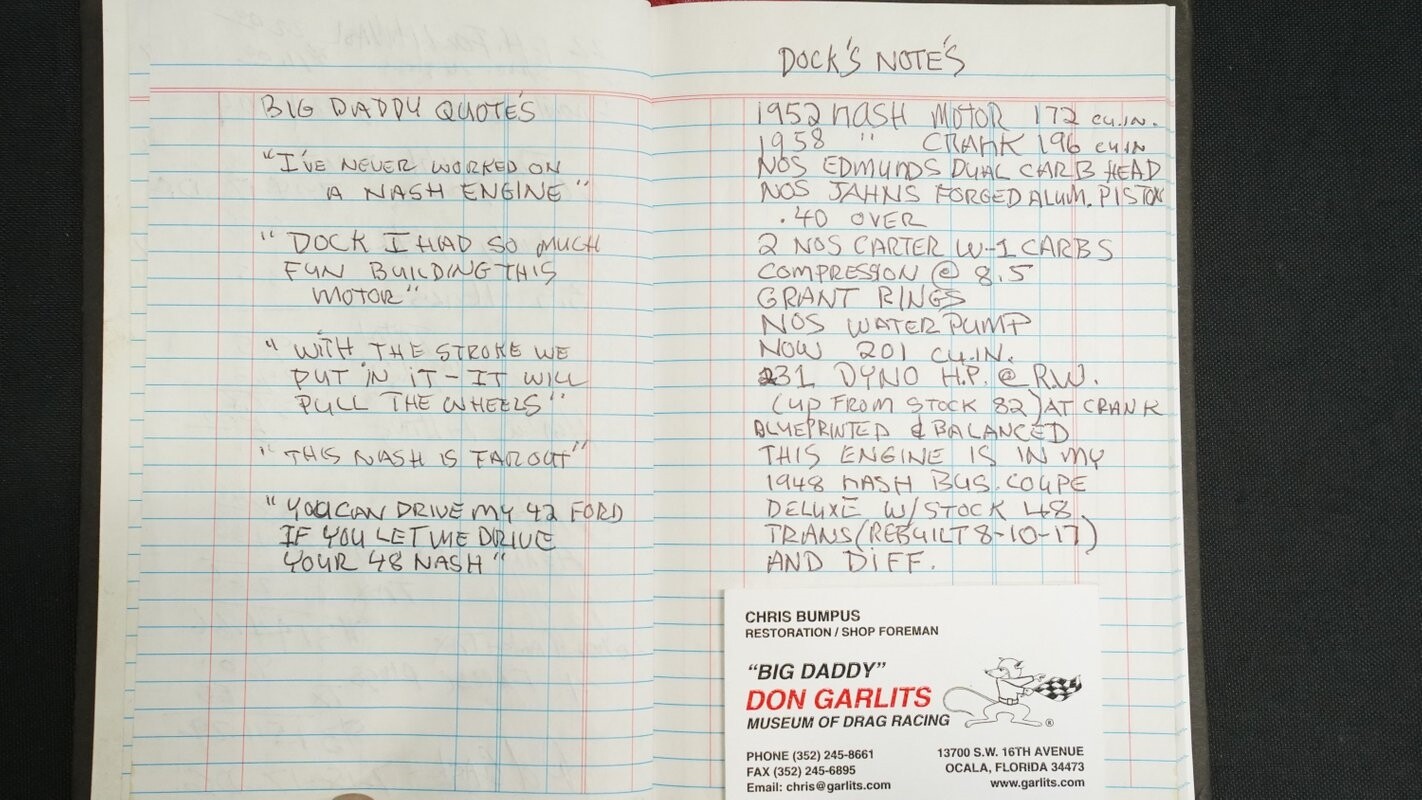 BIG DADDY QUOTE'S
"I'VE NEVER WORKED ON
A NASH ENGINE"
"DOCK I HAD SO MUCH
FUN BUILDING THIS
MOTOR"
"WITH THE STROKE WE
PUT IN IT - IT WILL
PULL THE WHEELS"
"THIS NASH IS FAR OUT"
"YOU CAN DRIVE MY 42 FORD
IF YOU LET ME DRIVE
YOUR 48 NASH"
DOCK'S NOTE'S
1952 NASH MOTOR 172 CU.IN.
1958 " CRANK 196 CU.IN
NOS EDMUNDS DUAL CARB HEAD
NOS JAHNS FORGED ALUM. PISTON
.40 OVER
2 NOS CARTER W-1 CARBS
COMPRESSION @ 8.5
GRANT RINGS
NOS WATER PUMP
NOW 201 CU.IN.
231 DYNO H.P. @ R.W.
(UP FROM STOCK 82) AT CRANK
BLUEPRINTED & BALANCED
THIS ENGINE IS IN MY
1948 NASH BUS. COUPE
DELUXE W/STOCK 48
TRANS (REBUILT 8-10-17)
AND DIFF.
CHRIS BUMPUS
RESTORATION / SHOP FOREMAN
"BIG DADDY"
DON GARLITS
MUSEUM OF DRAG RACING
®
PHONE (352) 245-8661
FAX (352) 245-6895
Email: chris@garlits.com
13700 S.W. 16TH AVENUE
OCALA, FLORIDA 34473
www.garlits.com